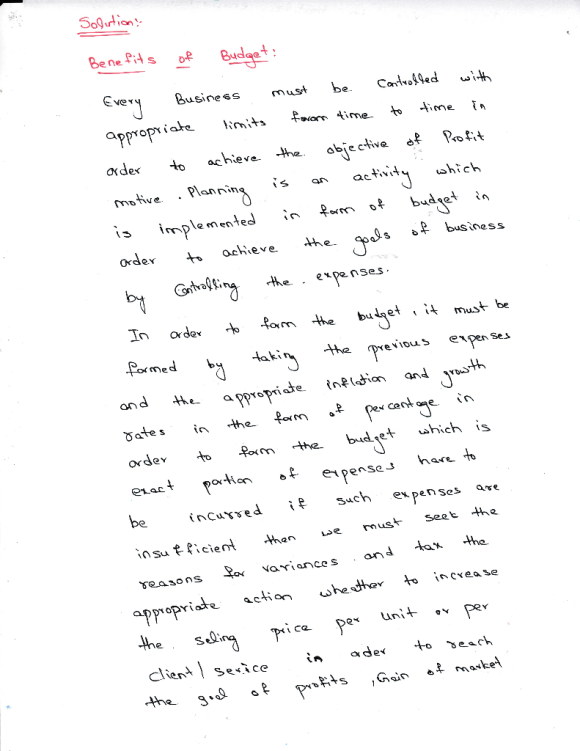 Solution:
Benefits of Budget:
Every Business must be Controlled with
appropriate limits from time to time in
order to achieve the objective of Profit
motive. Planning is an activity which
is implemented in form of budget in
order to achieve the goals of business
by Controlling the expenses.
In order to form the budget, it must be
formed by taking the previous expenses
and the appropriate inflation and growth
rates in the form of percentage in
order to form the budget which is
exact portion of expenses have to
be incurred if such expenses are
insufficient then we must seek the
reasons for variances and tax the
appropriate action wheather to increase
the seling price per unit or per
client/service in order to reach
the goal of profits, Gain of market